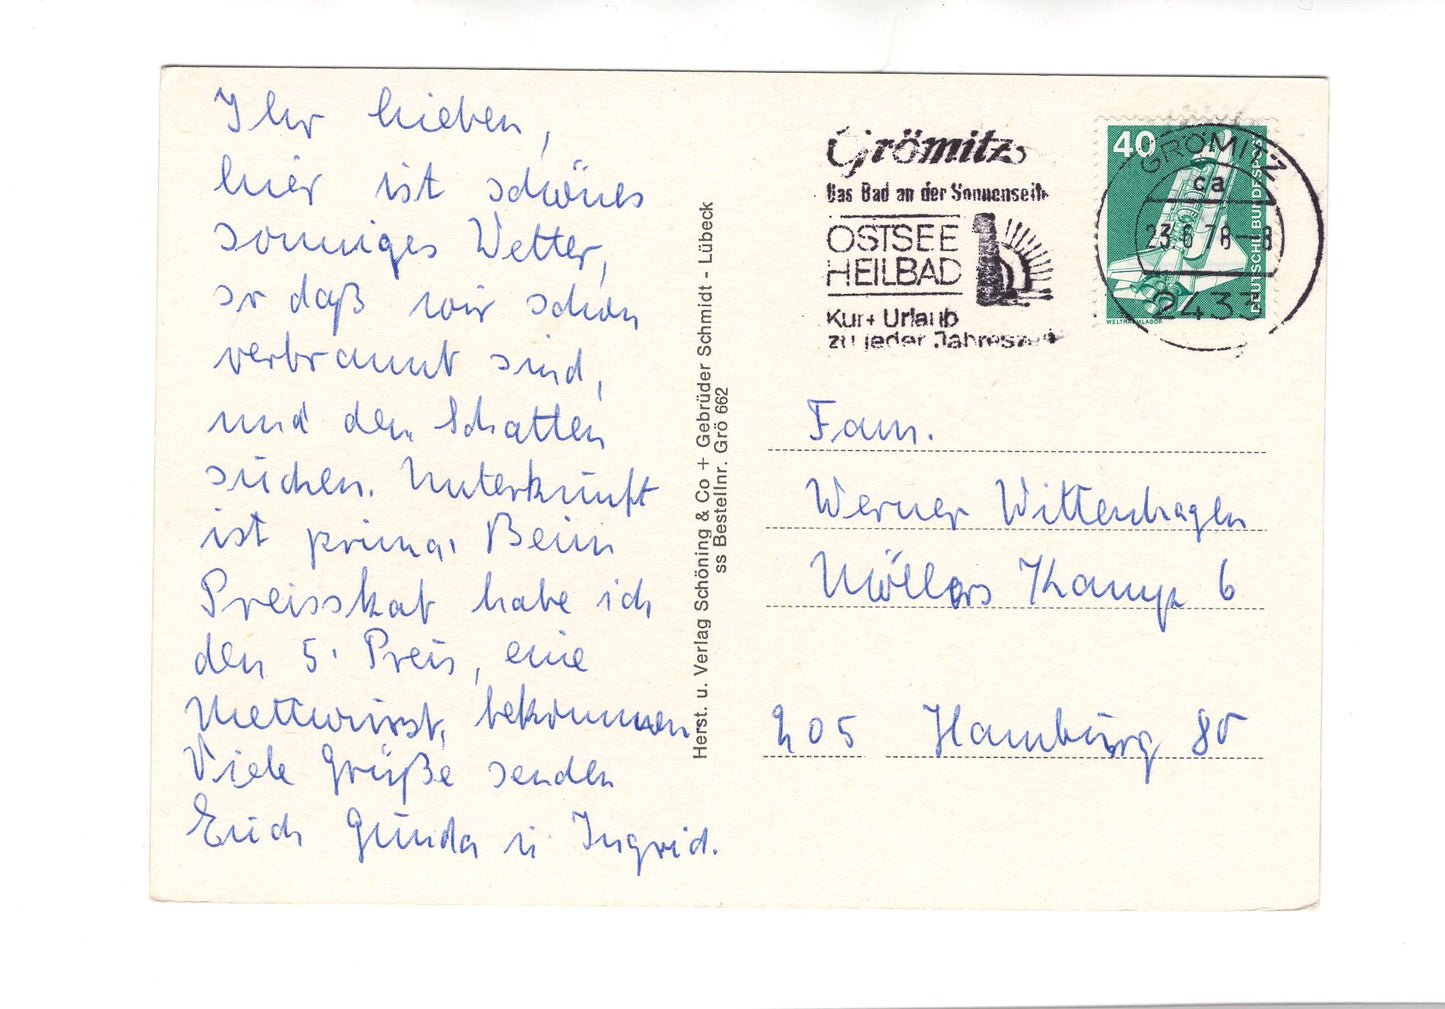 Ihr lieben,
hier ist schönes
sonniges Wetter,
so daß wir schon
verbrannt sind,
und den Schatten
suchen. Unterkunft
ist prima. Beim
Preisskat habe ich
den 5. Preis, eine
Mettwurst, bekommen.
Viele Grüße senden
Erich Gunda u Ingrid.
Herst. u. Verlag Schöning & Co + Gebrüder Schmidt - Lübeck
ss Bestellnr. Grö 662
Grömitz
Das Bad an der Sonnenseite
OSTSEE
HEILBAD
Kur + Urlaub
zu jeder Jahreszeit
40
DEUTSCHE BUNDESPOST
WELTRAUMLABOR
GRÖMITZ
ca
23.6.78-8
2433
Fam.
Werner Wittenhagen
Möllers Kamp 6
205 Hamburg 80